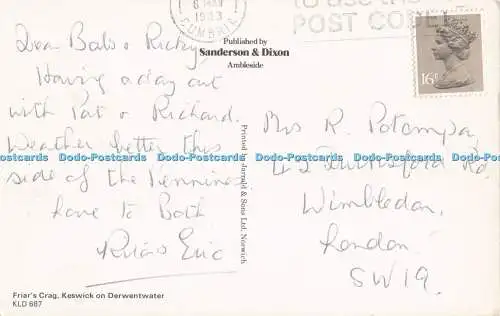 6 MAY
1983
CUMBRIA
POST CODE
Published by
Sanderson & Dixon
Ambleside
16P
Dear Babs &
Having a day out
with Pat & Richard.
Weather better this
side of the Pennines
Love to Both
Eric
Printed by Jarrold & Sons Ltd. Norwich
Mrs R. Potompa
42 Rd
Wimbledon,
London
SW19.
Dodo-Postcards Dodo-Postcards Dodo-Postcards Dodo-Postcards Dodo-Postcards Dodo-Postcards
Friar's Crag, Keswick on Derwentwater
KLD 687